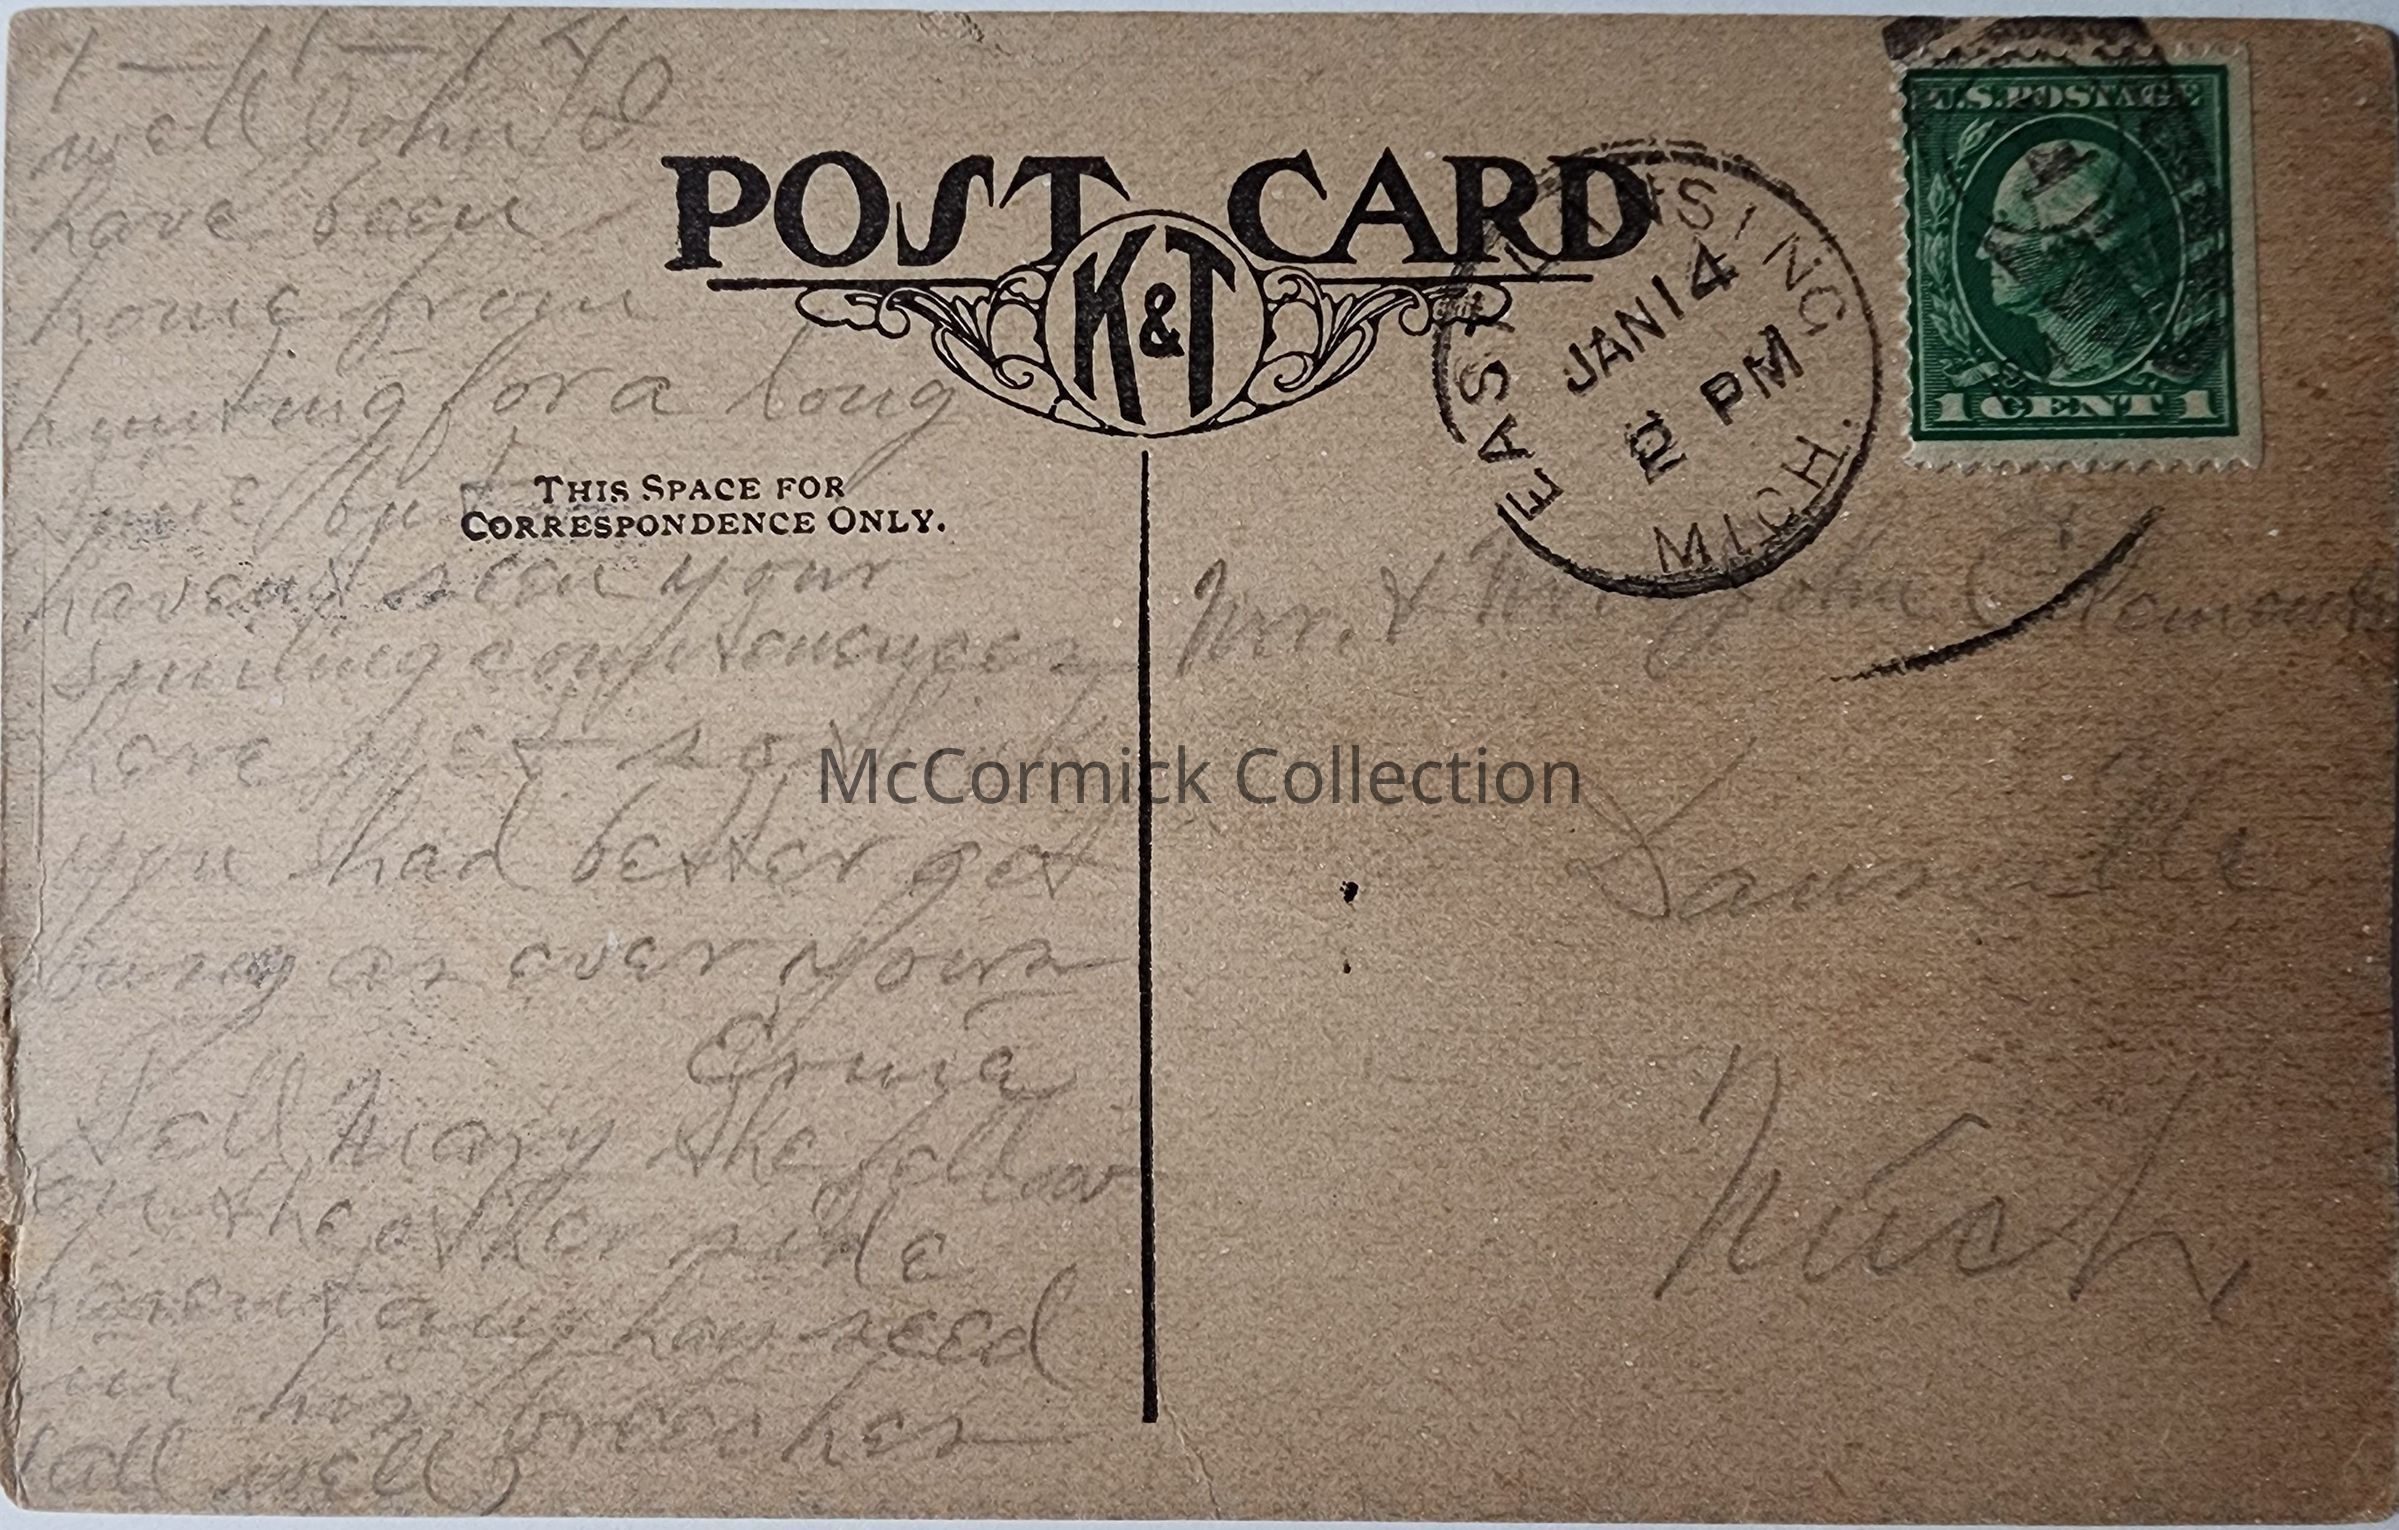 1-11-14
well John I
have been
home from
hunting for a long
time but
havent seen your
smiling countenance
here yet so
you had better get
busy as ever yours
Ernie
Tell Mary the fellow
on the other side
havent any hayseed
in his breeches
(all well)
POST CARD
K&T
THIS SPACE FOR
CORRESPONDENCE ONLY.
EAST LANSING
JAN 14
12 PM
MICH.
U.S. POSTAGE
1 CENT 1
Mr. & Mrs John
Mich,
McCormick Collection